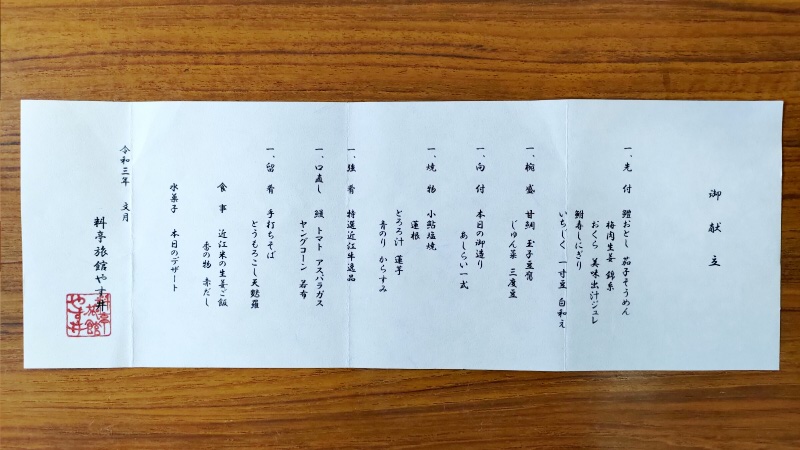 御献立
一、先付 鱧おとし 茄子そうめん
梅肉生姜 錦糸
おくら 美味出汁ジュレ
鮒寿しにぎり
いちじく、一寸豆 白和え
一、椀盛 甘鯛 玉子豆腐
じゅん菜 三度豆
一、向付 本日の御造り
あしらい一式
一、焼物 小鮎塩焼
蓮根
とろろ汁 蓮芋
青のり からすみ
一、強肴 特選近江牛逸品
一、口直し 鰻 トマト アスパラガス
ヤングコーン 若布
一、留肴 手打ちそば
とうもろこし天麩羅
食事 近江米の生姜ご飯
香の物 赤だし
水菓子 本日のデザート
令和三年 文月
料亭旅館やす井
料亭
旅館
やす井